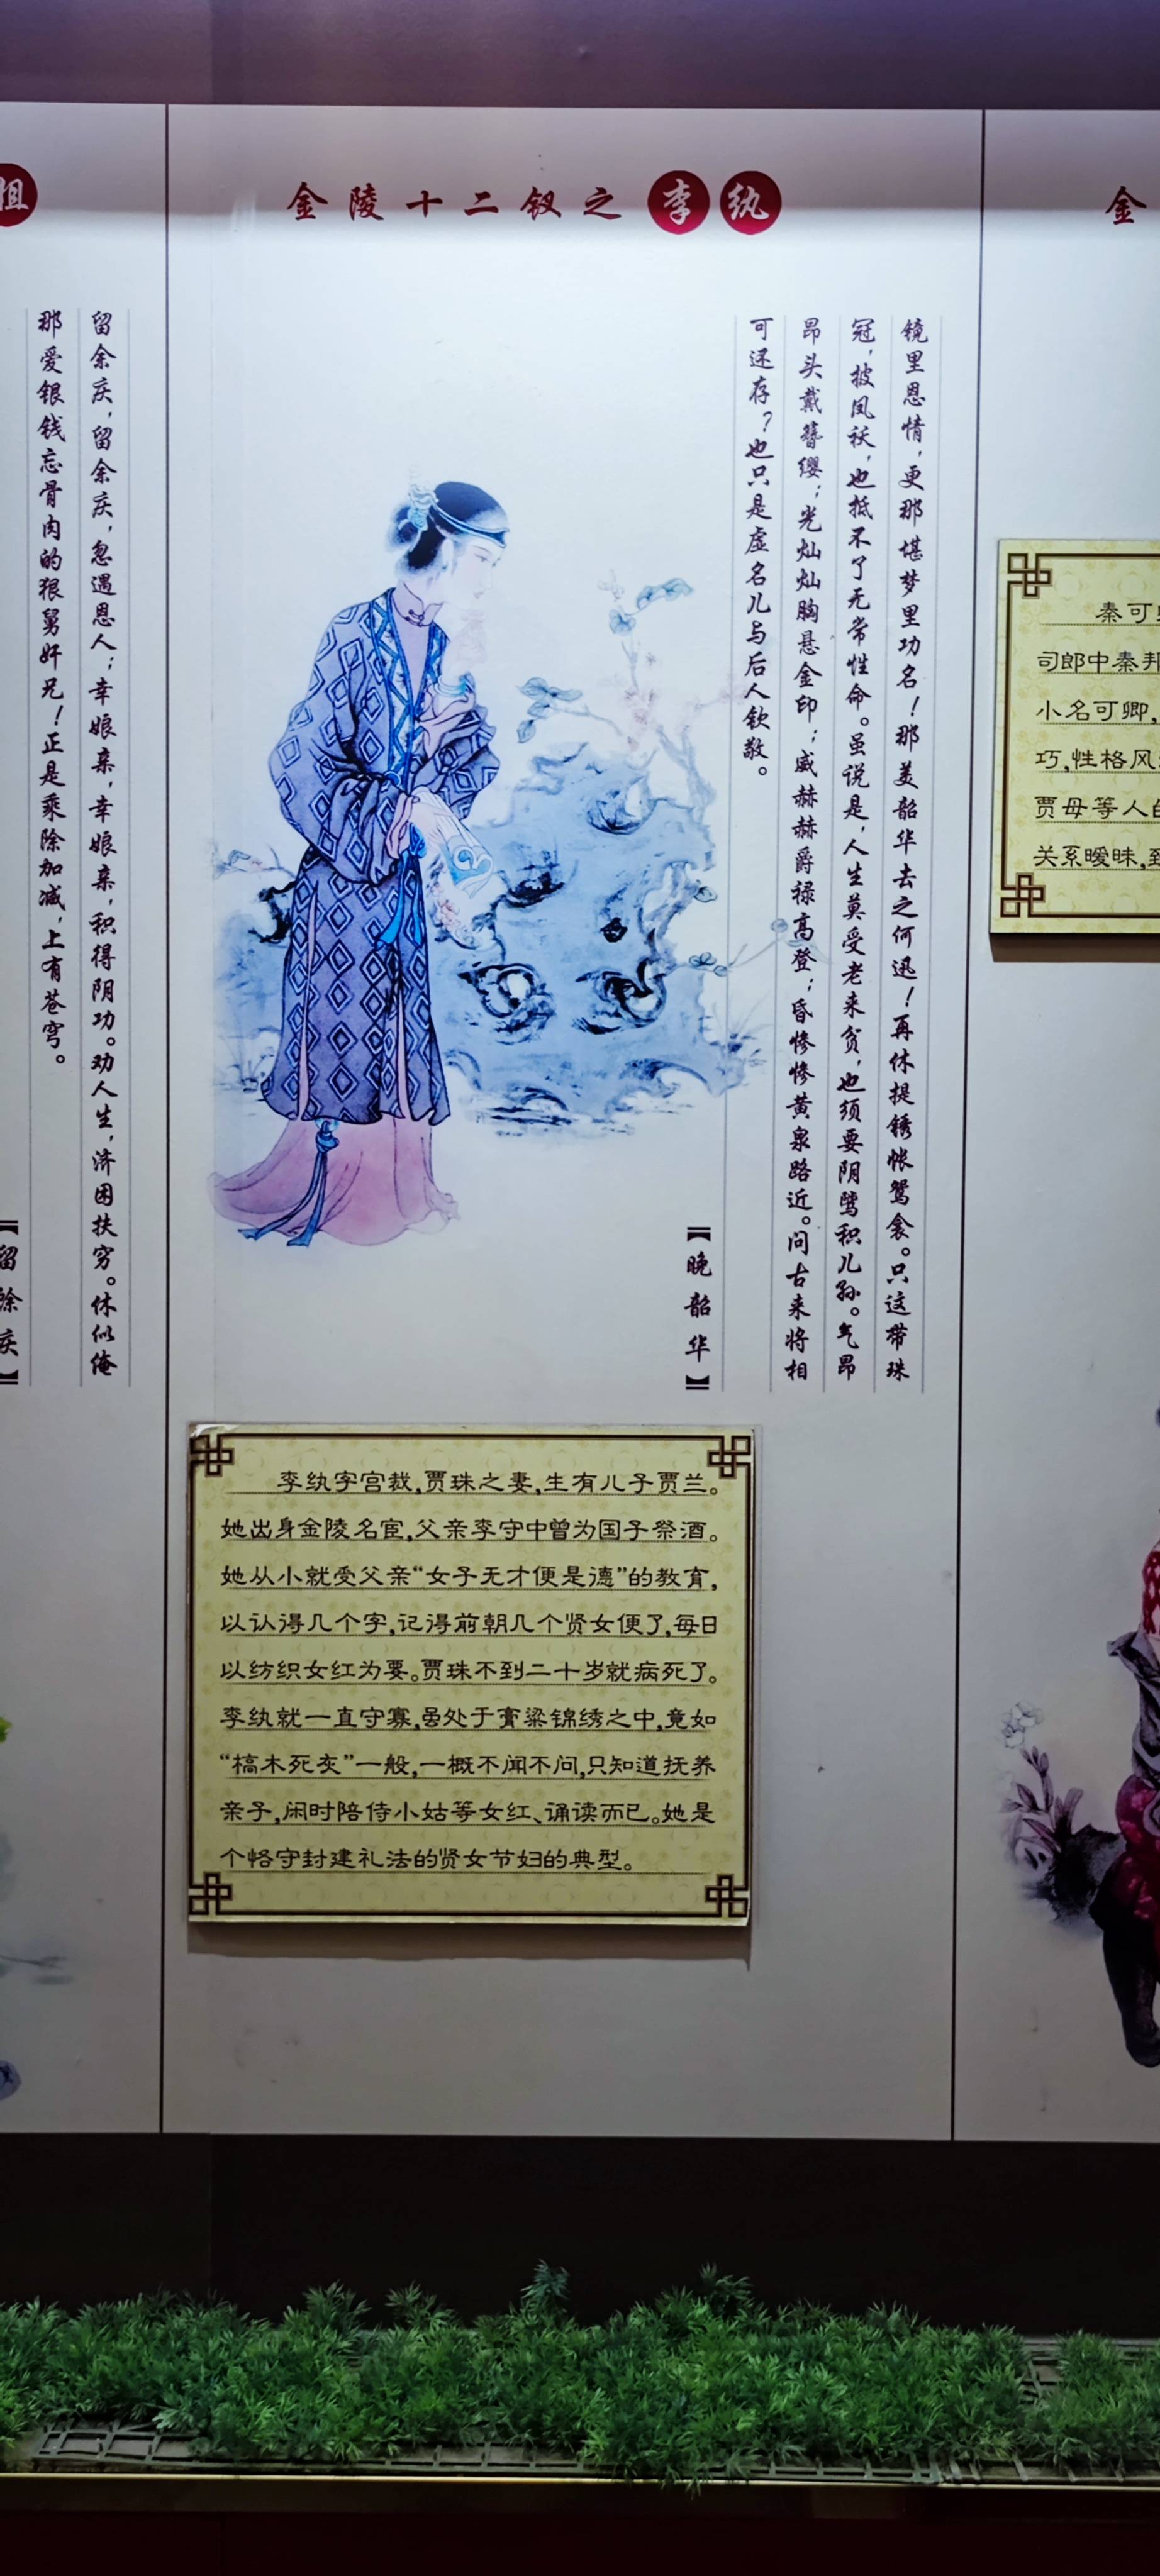 金陵十二钗之李纨
镜里恩情，更那堪梦里功名！那美韶华去之何迅！再休提锈帐鸳衾。只这带珠
冠，披凤袄，也抵不了无常性命。虽说是，人生莫受老来贫，也须要阴骘积儿孙。气昂
昂头戴簪缨；光灿灿胸悬金印；威赫赫爵禄高登；昏惨惨黄泉路近。问古来将相
可还存？也只是虚名儿与后人钦敬。
【晚韶华】
李纨字宫裁，贾珠之妻，生有儿子贾兰。
她出身金陵名宦，父亲李守中曾为国子祭酒。
她从小就受父亲“女子无才便是德”的教育，
以认得几个字，记得前朝几个贤女便了，每日
以纺织女红为要。贾珠不到二十岁就病死了。
李纨就一直守寡，虽处于膏粱锦绣之中，竟如
“槁木死灰”一般，一概不闻不问，只知道抚养
亲子，闲时陪侍小姑等女红、诵读而已。她是
个恪守封建礼法的贤女节妇的典型。
姐
留余庆，留余庆，忽遇恩人；幸娘亲，幸娘亲，积得阴功。劝人生，济困扶穷。休似俺
那爱银钱忘骨肉的狠舅奸兄！正是乘除加减，上有苍穹。
【留馀庆】
金
秦可
司郎中秦邦
小名可卿，
巧，性格风
贾母等人的
关系暧昧，致